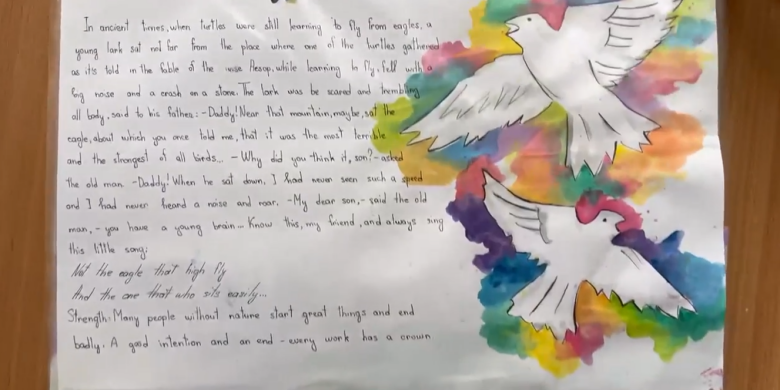 In ancient times, when turtles were still learning to fly from eagles, a
young lark sat not far from the place where one of the turtles gathered
as it's told in the fable of the wise Aesop, while learning to fly, fell with a
big noise and a crash on a stone. The lark was be scared and trembling
all body, said to his father: - Daddy! Near that mountain, maybe, sat the
eagle, about which you once told me, that it was the most terrible
and the strongest of all birds... - Why did you think it, son? - asked
the old man. - Daddy! When he sat down, I had never seen such a speed
and I had never heard a noise and roar. - My dear son, - said the old
man, - you have a young brain... Know this, my friend, and always sing
this little song:
Not the eagle that high fly
And the one that who sits easily...
Strength: Many people without nature start great things and end
badly. A good intention and an end - every work has a crown